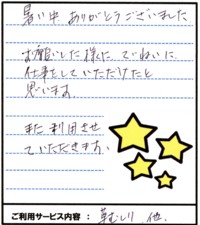 暑い中 ありがとうございました
お願いした様に ていねいに
仕事をしていただけたと
思います。
また利用させ
ていただきます。
ご利用サービス内容： 草むしり 他.